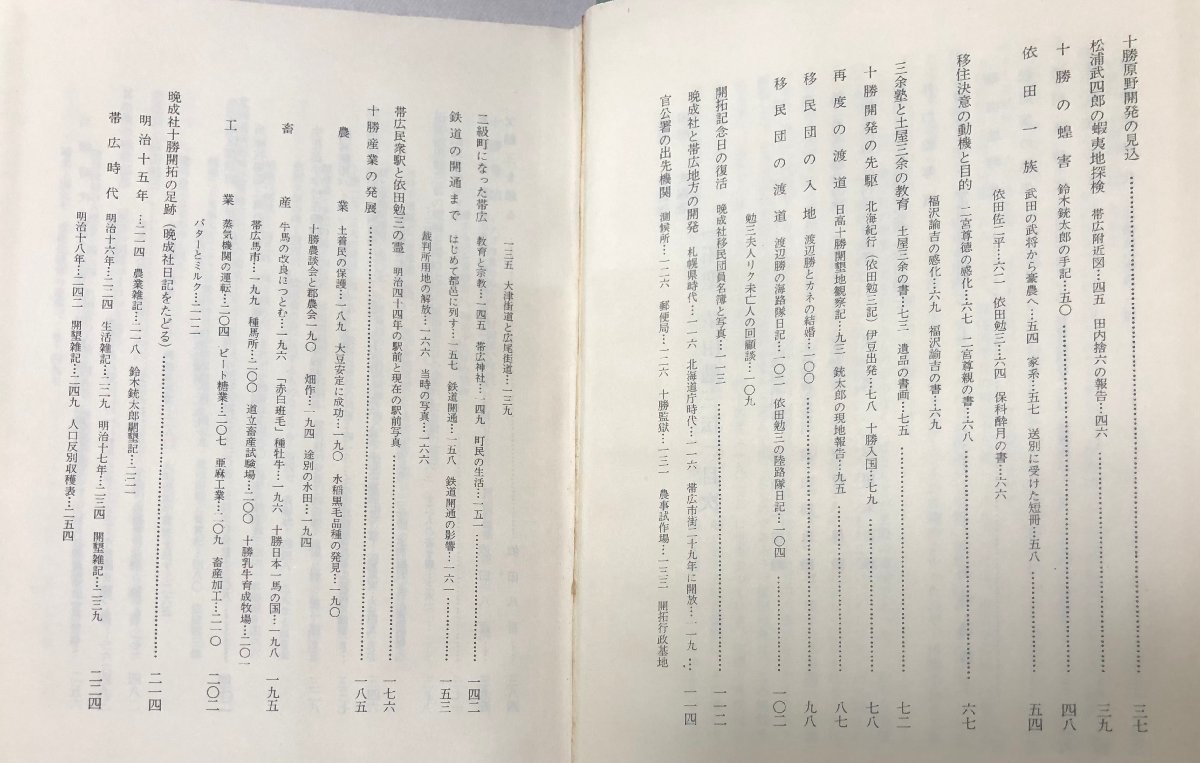 十勝原野開発の見込……三七
松浦武四郎の蝦夷地探検　帯広附近図…四五　田内捨六の報告…四六　三九
十勝の蝗害　鈴木銃太郎の手記…五〇……四八
依田一族　武田の武将から豪農へ…五四　家系…五七　送別に受けた短冊…五八　五四
依田佐二平…六二　依田勉三…六四　保科酔月の書…六六
移住決意の動機と目的　二宮尊徳の感化…六七　二宮尊親の書…六八……六七
福沢諭吉の感化…六九　福沢諭吉の書…六九
三余塾と土屋三余の教育　土屋三余の書…七三　遺品の書画…七五……七二
十勝開発の先駆　北海紀行（依田勉三記）伊豆出発…七八　十勝入国…七九……七八
再度の渡道　日高十勝開墾地観察記…九三　銃太郎の現地報告…九五……八七
移民団の入地　渡辺勝とカネの結婚…一〇〇……九八
移民団の渡道　渡辺勝の海路隊日記…一〇三　依田勉三の陸路隊日記…一〇四……一〇二
勉三夫人リク未亡人の回顧談…一〇九
開拓記念日の復活　晩成社移民団員名簿と写真…一一三……一一二
晩成社と帯広地方の開発　札幌県時代…一一六　北海道庁時代…一一六　帯広市街二十九年に開放…一一九…一一四
官公署の出先機関　測候所…一二六　郵便局…一二六　十勝監獄…一三一　農事試作場…一三三　開拓行政基地
一三五　大津街道と広尾街道…一三九
二級町になった帯広　教育と宗教…一四五　帯広神社…一四九　町民の生活…一五一……一四二
鉄道の開通まで　はじめて都邑に列す…一五七　鉄道開通…一五八　鉄道開通の影響…一六一……一五三
裁判所用地の解放…一六六　当時の写真…一六六
帯広民衆駅と依田勉三の霊　明治四十四年の駅前と現在の駅前写真……一七六
十勝産業の発展……一八五
農業　土着民の保護…一八九　大豆安定に成功…一九〇　水稲黒毛品種の発見…一九〇
十勝農談会と郡農会一九〇　畑作…一九四　途別の水田…一九四
畜産　牛馬の改良につとむ…一九六　「赤白斑毛」種牡牛…一九六　十勝日本一馬の国…一九八　一九五
帯広馬市…一九九　種馬所…二〇〇　道立畜産試験場…二〇〇　十勝乳牛育成牧場…二〇一
工業　蒸気機関の運転…二〇四　ビート糖業…二〇七　亜麻工業…二〇九　畜産加工…二一〇　二〇二
バターとミルク…二一二
晩成社十勝開拓の足跡（晩成社日記をたどる）……二一四
明治十五年　…二一四　農業雑記…二一八　鈴木銃太郎開墾記…二二一
帯広時代　明治十六年…二二四　生活雑記…二二九　明治十七年…二三四　開墾雑記…二三九　二二四
明治十八年…二四二　開墾雑記…二四九　人口反別収穫表…二五四